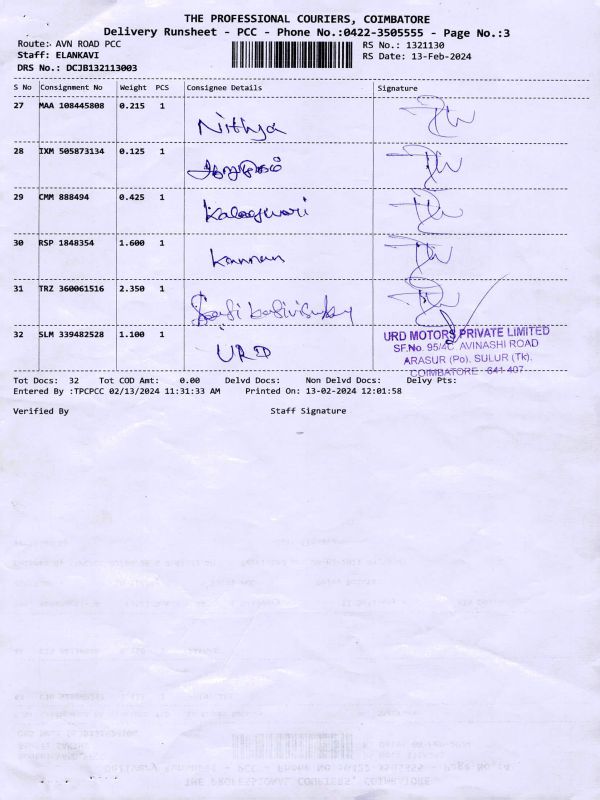 THE PROFESSIONAL COURIERS, COIMBATORE
Delivery Runsheet - PCC - Phone No.:0422-3505555 - Page No.:3
Route: AVN ROAD PCC RS No.: 1321130
Staff: ELANKAVI RS Date: 13-Feb-2024
DRS No.: DCJB132113003
S No Consignment No Weight PCS Consignee Details Signature
27 MAA 108445808 0.215 1
Nithya
28 IXM 505873134 0.125 1
29 CMM 888494 0.425 1
Kaleeswari
30 RSP 1848354 1.600 1
Kannan
31 TRZ 360061516 2.350 1
32 SLM 339482528 1.100 1
URD
URD MOTORS PRIVATE LIMITED
SF.No. 95/4C AVINASHI ROAD
ARASUR (Po). SULUR (Tk).
COIMBATORE - 641 407
Tot Docs: 32 Tot COD Amt: 0.00 Delvd Docs: Non Delvd Docs: Delvy Pts:
Entered By :TPCPCC 02/13/2024 11:31:33 AM Printed On: 13-02-2024 12:01:58
Verified By Staff Signature